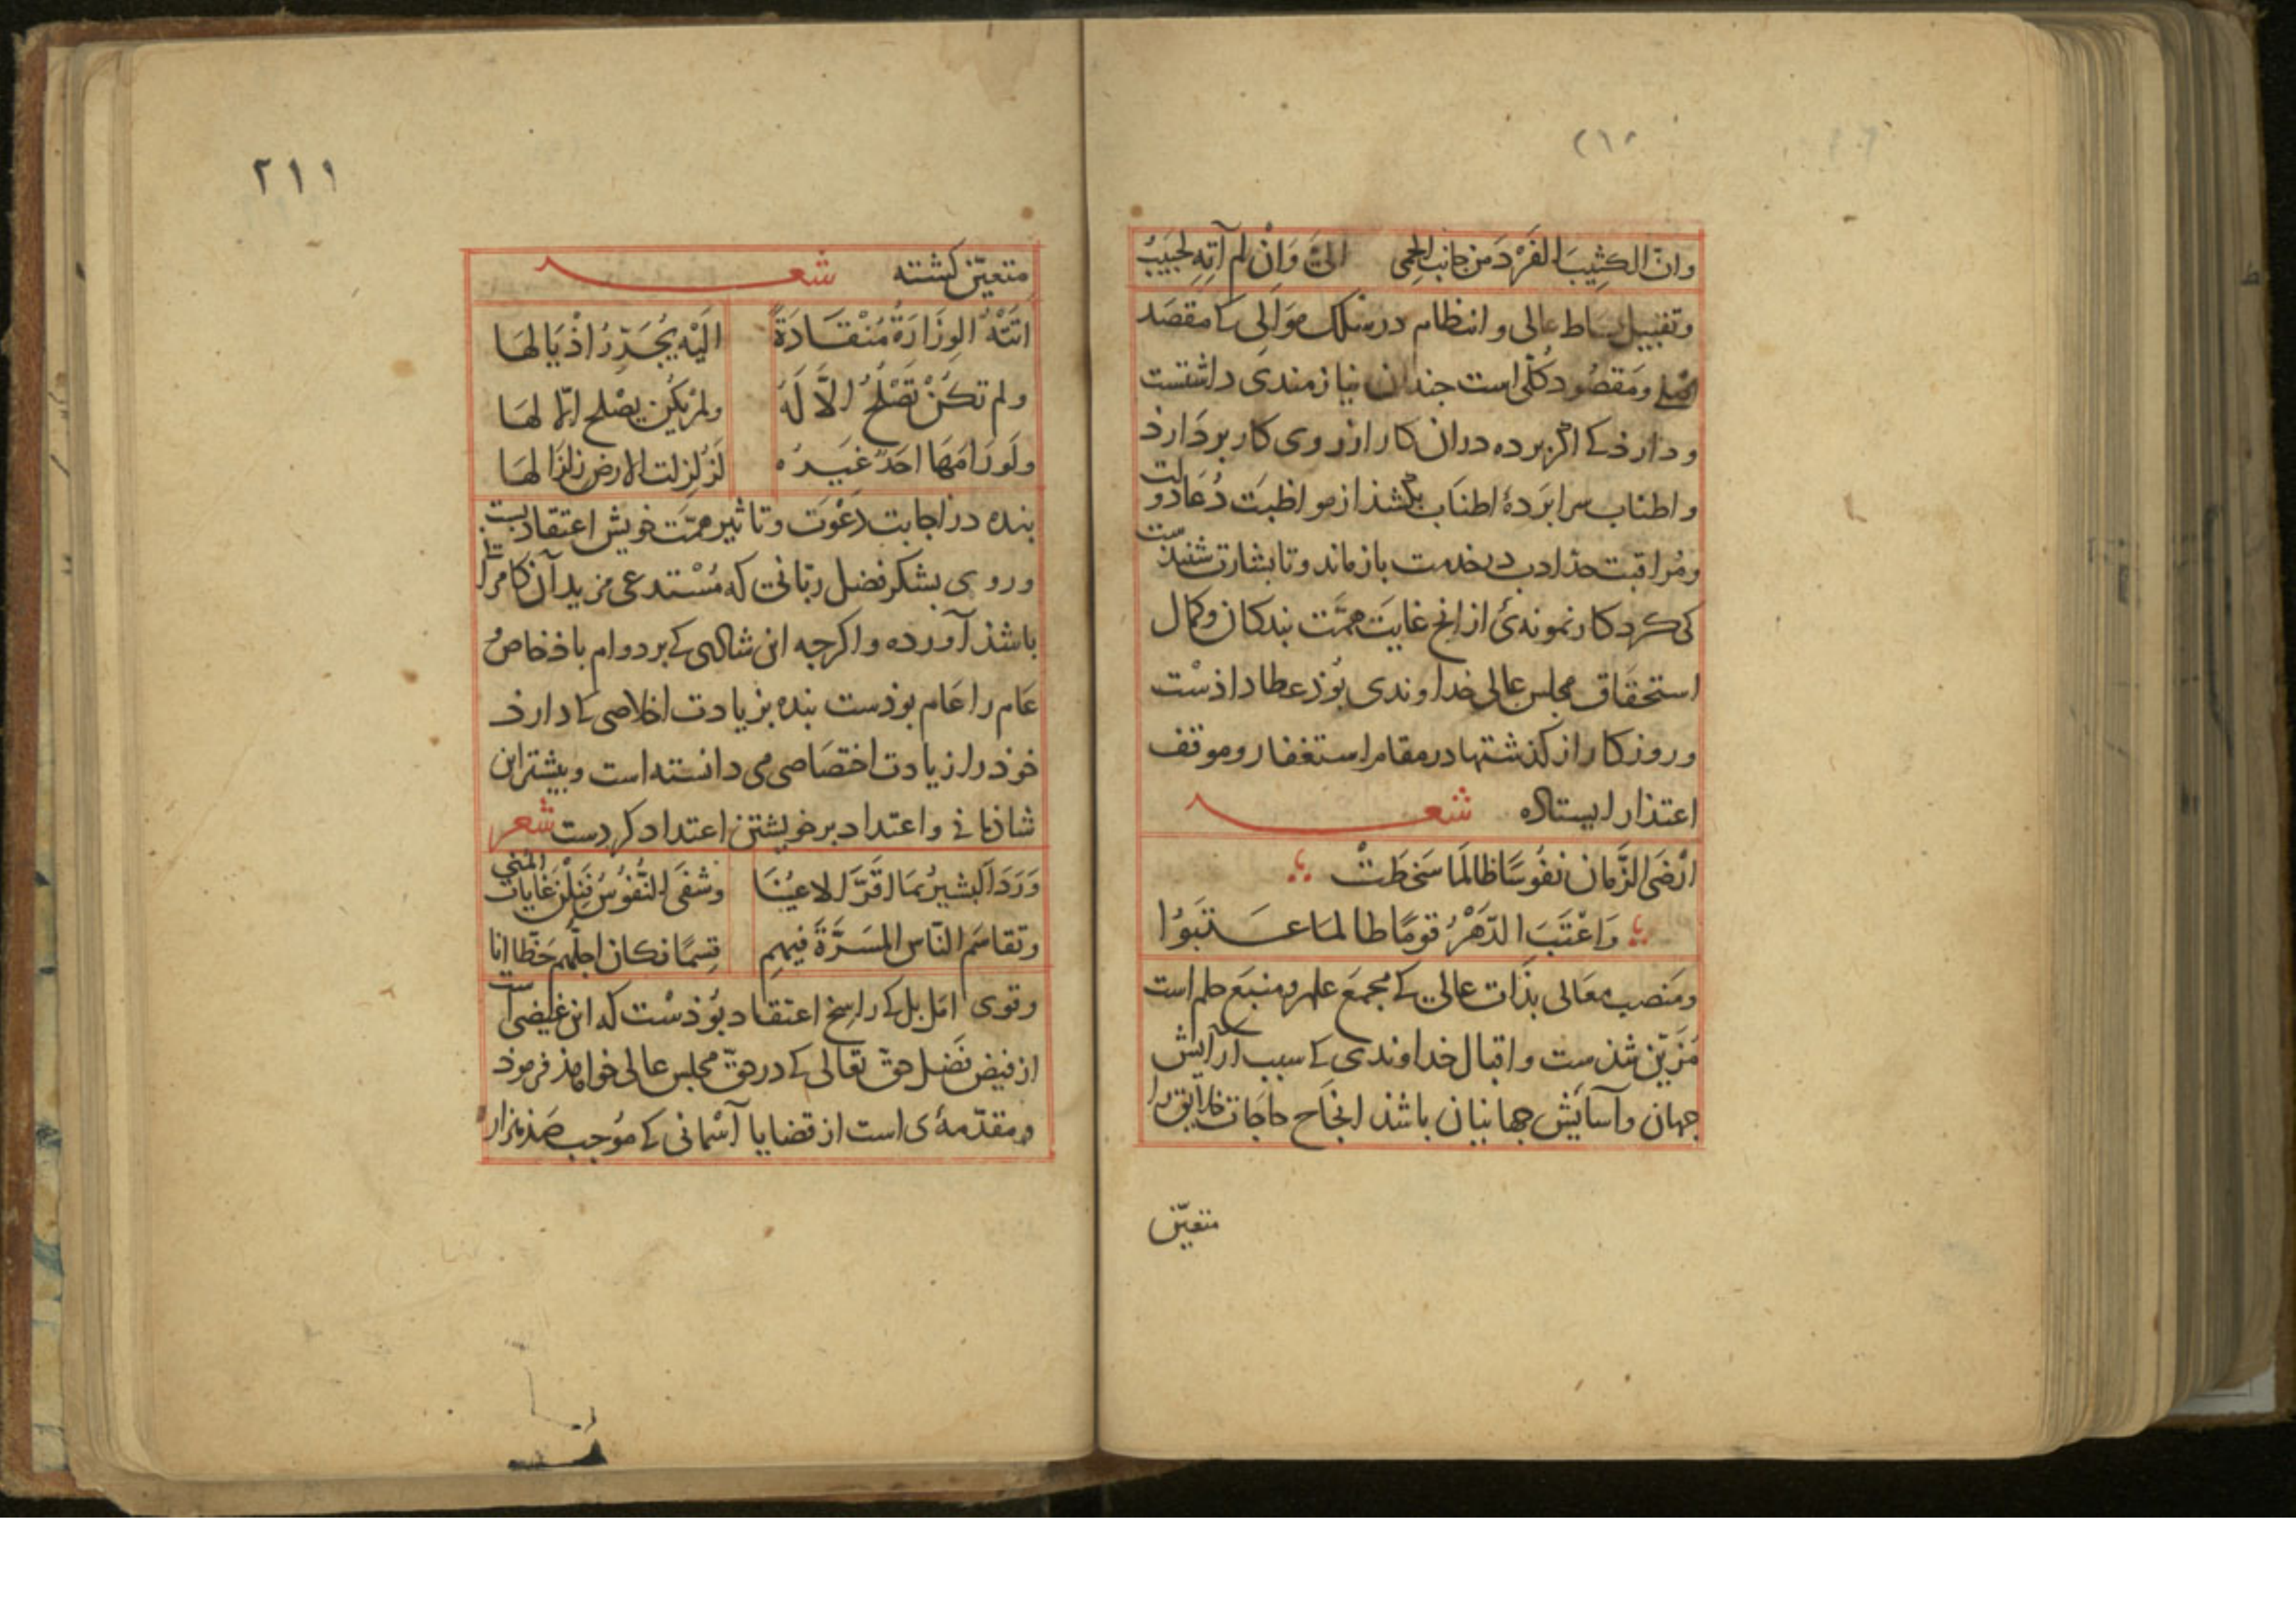 ٢١٠
وانّ الكثِيبَ الفَرْدَ من جانب الحِمى الىَّ وَاِنْ لم آتِهِ لَحَبيبُ
وتقبیل بساط عالی و انتظام در سلک موالی کی مقصَد
اصلی ومَقصُود کُلّی است جندان نیازمندی داشتست
و دارذ کے اکر برده دران کار از روی کار بردارذ
واطناب سرابَردهٔ اطناب بکشذ از مواظبَت دُعَا دولت
ومُراقبت حذ ادب در خدمت بازماند وتا بشارت شنیذست
کی کرد کار نمونهٔ از انج غایَت همَّت بندکان وکمال
استحقاق مجلس عالی خداوندی بوُذ عطا داذسْت
وروزکار از کذشتها در مقام استغفار وموقف
اعتذار ایستاده شعر
ارْضَى الزَّمان نفُوسًا طالَمَا سَخِطَتْ
وَاعْتَبَ الدّهْرُ قومًا طالمَا عَتَبوُا
ومَنصب معَالی بذَات عالی کے مجمَع علم ومنبَع حلم است
مُزیّن شذست واقبال خداوندی کے سبب آرایش
جهان وآسایش جهانیان باشذ انجَاح حاجَات خلایق را
متعیّن
٢١١
متعیّن کشته شعر
اتتْهُ الوِزَارَةُ مُنْقَادَةً الَيْه يُجَرِّرُ اذْيَالهَا
ولم تكُنْ تَصْلُحُ الاَّ لَهُ ولم يكُن يصْلح الاّ لهَا
ولَو رَامَهَا احَدٌ غيَرهُ لزُلزلت الارض زلزَالهَا
بنده در اجابت دَعْوَت وتاثیر همَّت خویش اعتقاد بست
وروی بشکر فضل ربّانی که مُسْتدعی مزید آن کامرا
باشذ آورده واکرجه این شادی کے بر دوام باذ خاصُ
عَام را عَام بوذست بنده بزیادت اخلاصی کے دارذ
خوذ را زیادت اختصَاصی می دانسته است وبیشتر این
شاذمانی واعتداد بر خویشتن اعتداد کردست شعر
وَرَدَ البشيرُ بمَا اقَرَّ الاعيُنَا وشفَى النُّفوُسَ فنِلْنَ غَايات المُنى
وتقاسَمَ النّاس المسَرَّةَ فيهِم قِسمًا فكان اجلَّهم حَظّا انا
وقوی امَل بل کے راسِخ اعتقاد بوُذسْت که این غیضی است
از فیض فَضل حقّ تعَالی کے در حقّ مجلس عالی خواهذ فرموذ
ومقدّمهٔ ی است از قضایا آسْمانی کے موُجب صَذ هزار